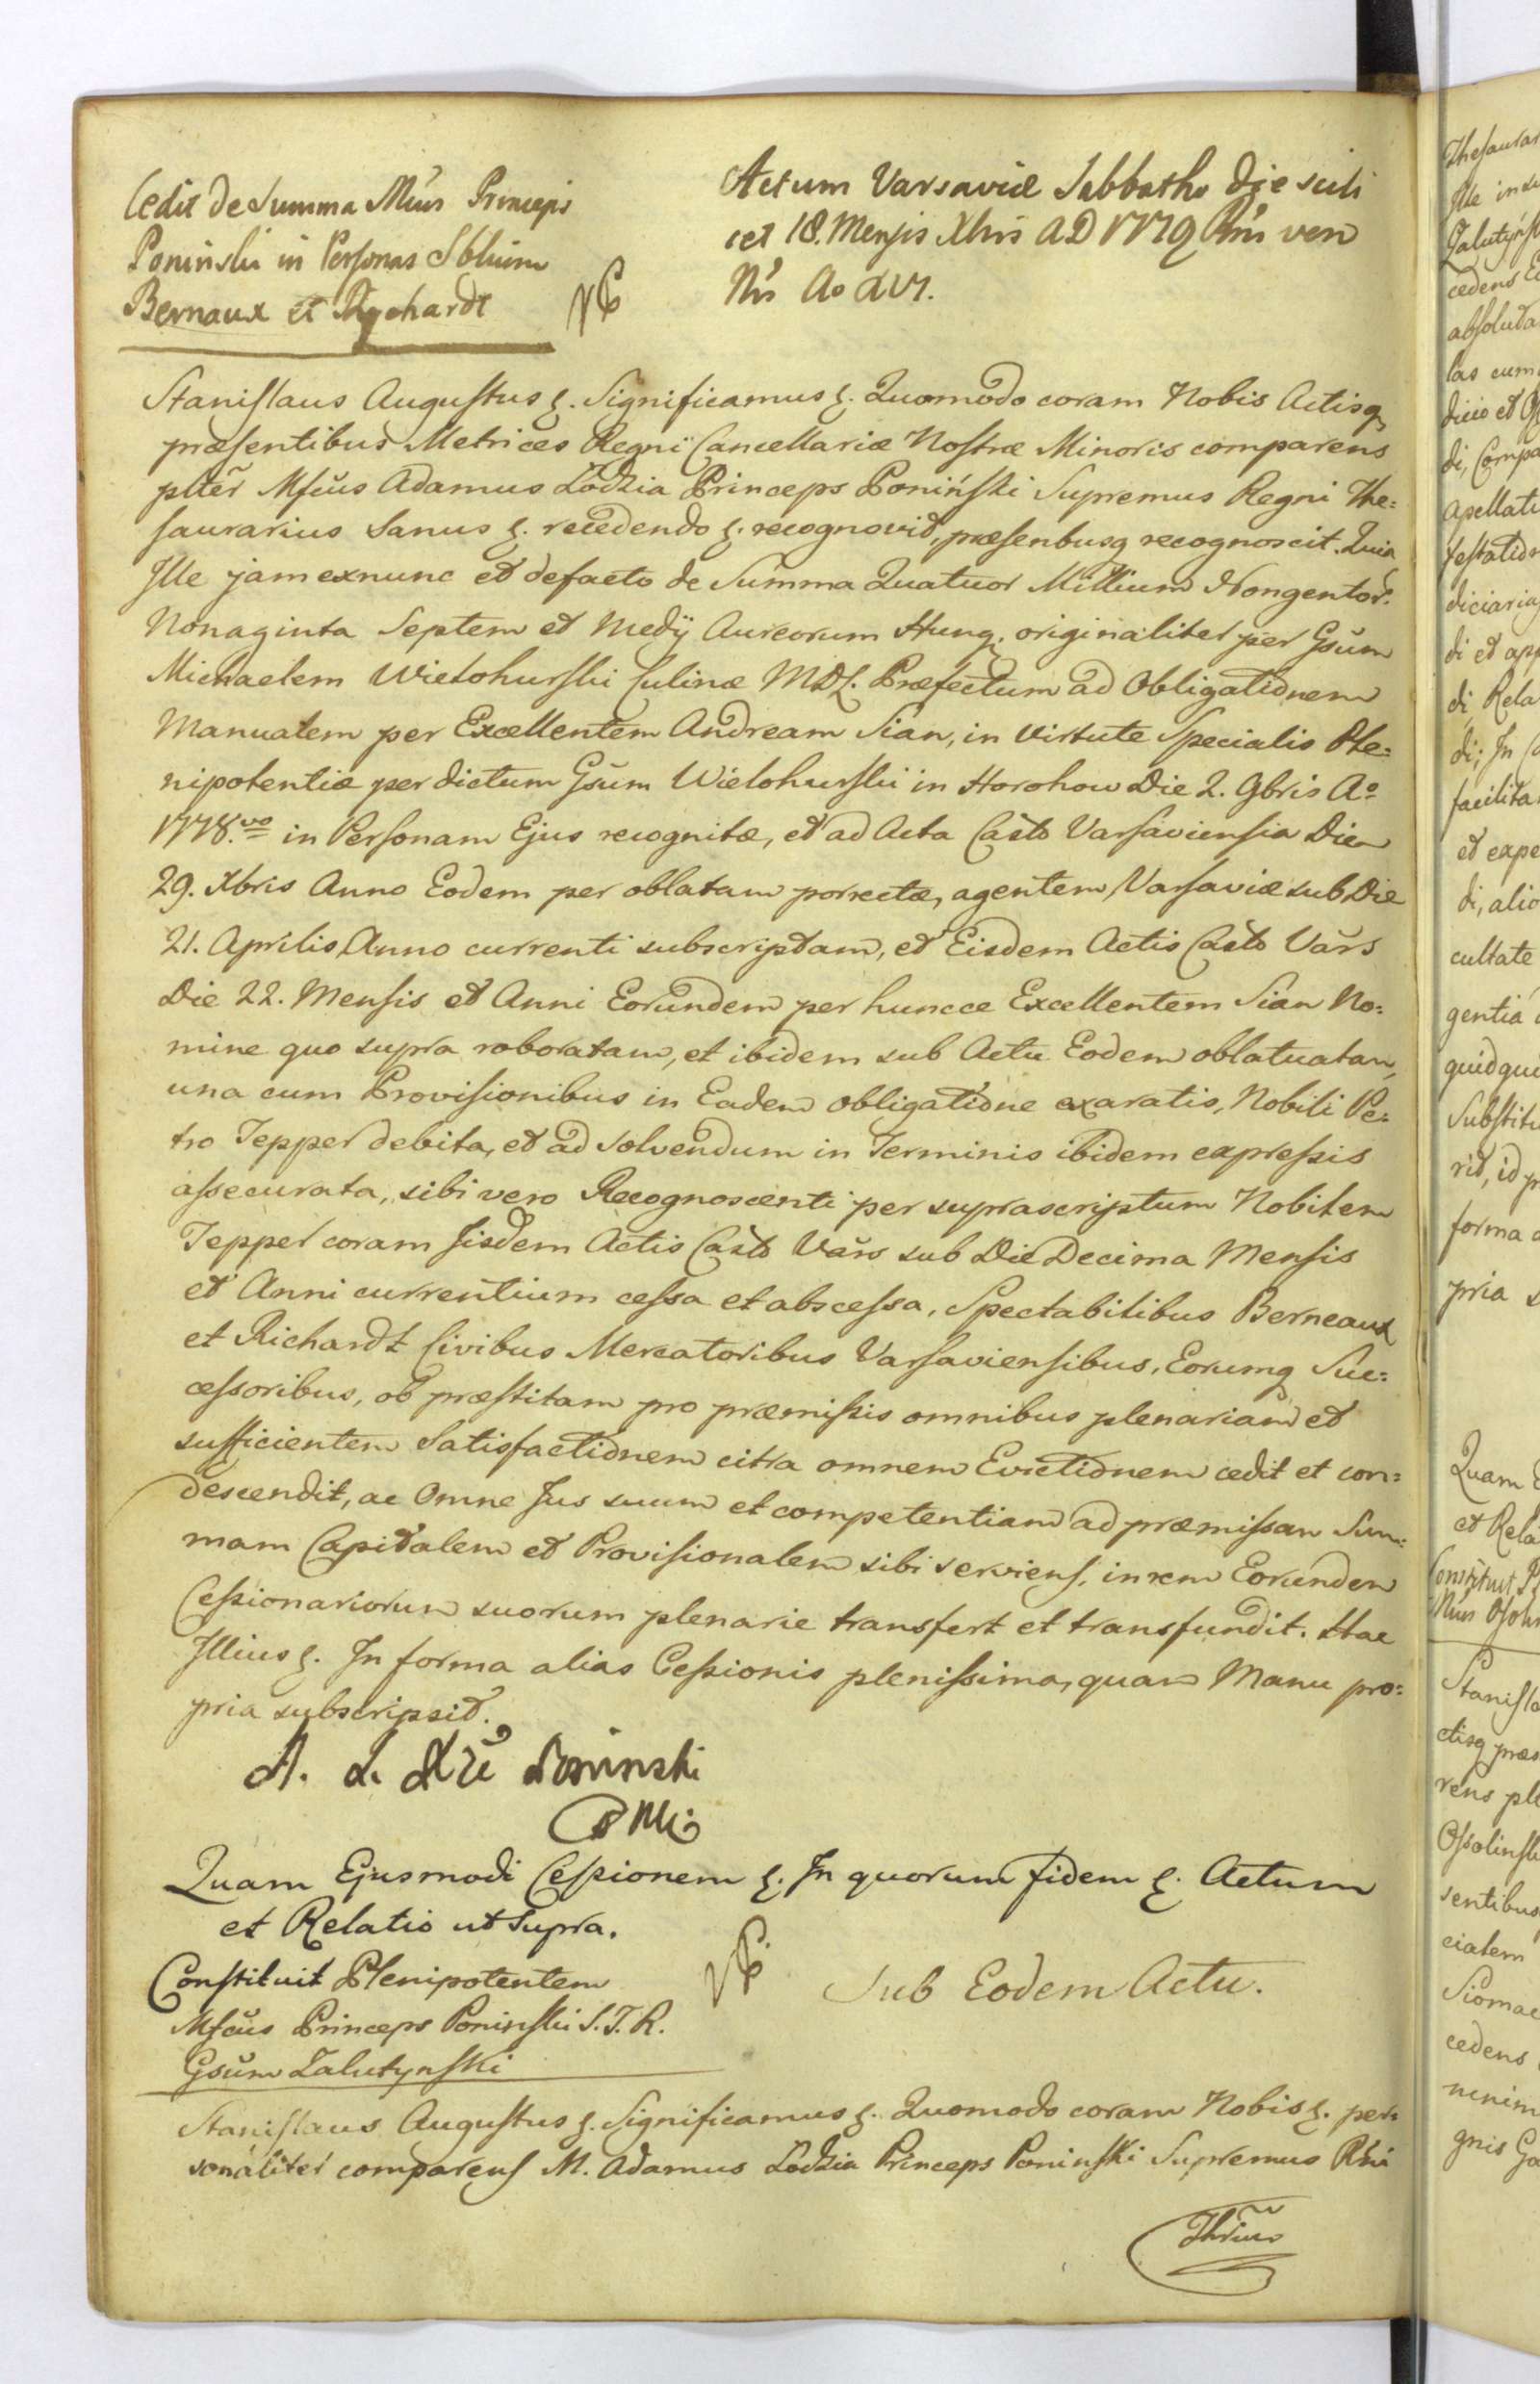 Cedit de Summa Mcus Princeps
Poninski in Personas Sblium
Bernaux et Rychardt
Actum Varsaviæ Sabbatho die scili
cet 18. Mensis Xbris AD 1779 Rni ven
Nri Ao XVI.
Stanislaus Augustus &. Significamus &. Quomodo coram Nobis Actisq
præsentibus Metrices Regni Cancellariæ Nostræ Minoris comparens
pltēr Mfcus Adamus Lodzia Princeps Poniński Supremus Regni The:
saurarius Sanus &. recedendo &. recognovit, præsenbusq recognoscit. Quia
Ille jam exnunc et defacto de Summa Quatuor Millium Nongentor.
Nonaginta Septem et Medij Aureorum Hung. originaliter per Gsum
Michaelem Wielohurski Culinæ MDL. Præfectum ad Obligationem
Manualem per Excellentem Andream Sian, in virtute Specialis Ple:
nipotentiæ per dictum Gsum Wielohurski in Horohow Die 2. 9bris Ao
1778.vo in Personam Ejus recognitæ, et ad Acta Casto Varsaviensia Die
29. Xbris Anno Eodem per oblatam porrectæ, agentem Varsaviæ sub Die
21. Aprilis Anno currenti subscriptam, et Eisdem Actis Casto Vars
Die 22. Mensis et Anni Eorundem per huncce Excellentem Sian No:
mine quo supra roboratam, et ibidem sub Actu Eodem oblatuatam,
una cum Provisionibus in Eadem obligatione exaratis, Nobili Pe:
tro Tepper debita, et ad solvendum in Terminis ibidem expressis
assecurata, sibi vero Recognoscenti per suprascriptum Nobilem
Tepper coram Iisdem Actis Casto Vars sub Die Decima Mensis
et Anni currentium cessa et abscessa, Spectabilibus Berneaux
et Richardt Civibus Mercatoribus Varsaviensibus, Eorumq Suc:
cessoribus, ob præstitam pro præmissis omnibus plenariam et
sufficientem Satisfactionem citra omnem Evictionem cedit et con:
descendit, ac Omne Jus suum et competentiam ad præmissam Sum:
mam Capitalem et Provisionalem sibi serviens, in rem Eorundem
Cessionariorum suorum plenarie transfert et transfundit. Hac
Illius &. In forma alias Cessionis plenissima, quam Manu pro:
pria subscripsit.
A. L. Xże Poninski
Quam Ejusmodi Cessionem &. In quorum fidem &. Actum
et Relatio ut supra.
Constituit Plenipotentem
Mfcus Princeps Poninski S. T. R.
Gsum Zalutynski
Sub Eodem Actu.
Stanislaus Augustus &. Significamus &. Quomodo coram Nobis &. per:
sonaliter comparens M. Adamus Lodzia Princeps Poninski Supremus Rni
Thrius